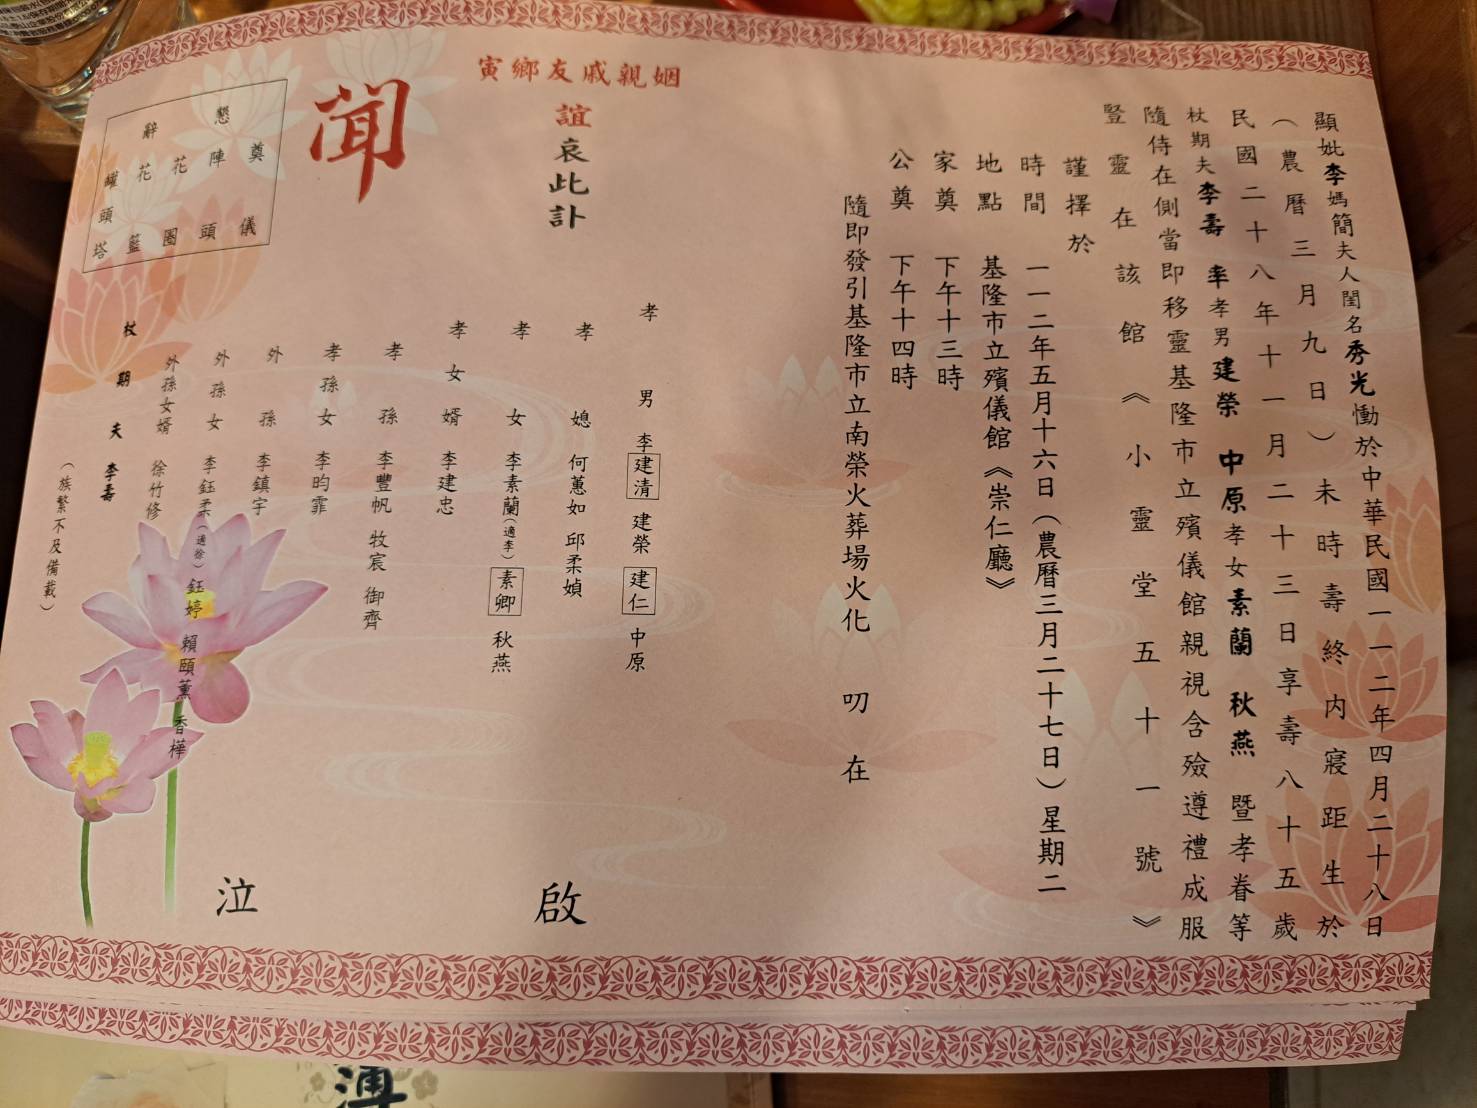 顯妣李媽簡夫人閨名秀光慟於中華民國一一二年四月二十八日
（農曆三月九日）未時壽終內寢距生於
民國二十八年十一月二十三日享壽八十五歲
杖期夫李壽 率孝男建榮 中原孝女素蘭 秋燕 暨孝眷等
隨侍在側當即移靈基隆市立殯儀館親視含殮遵禮成服
豎靈在該館《小靈堂五十一號》
謹擇於
時間 一一二年五月十六日（農曆三月二十七日）星期二
地點 基隆市立殯儀館《崇仁廳》
家奠 下午十三時
公奠 下午十四時
隨即發引基隆市立南榮火葬場火化 叨在
寅鄉友戚親姻
誼哀此訃
聞
孝男 李建清 建榮 建仁 中原
孝媳 何蕙如 邱柔媜
孝女 李素蘭（適李） 素卿 秋燕
孝女婿 李建忠
孝孫 李豐帆 牧宸 御齊
孝孫女 李昀霏
外孫 李鎮宇
外孫女 李鈺柔（適徐） 鈺婷 賴頤薰 香樺
外孫女婿 徐竹修
杖期夫 李壽
（族繁不及備載）
泣啟
懇辭
奠儀
花陣頭
花圈
花籃
罐頭塔